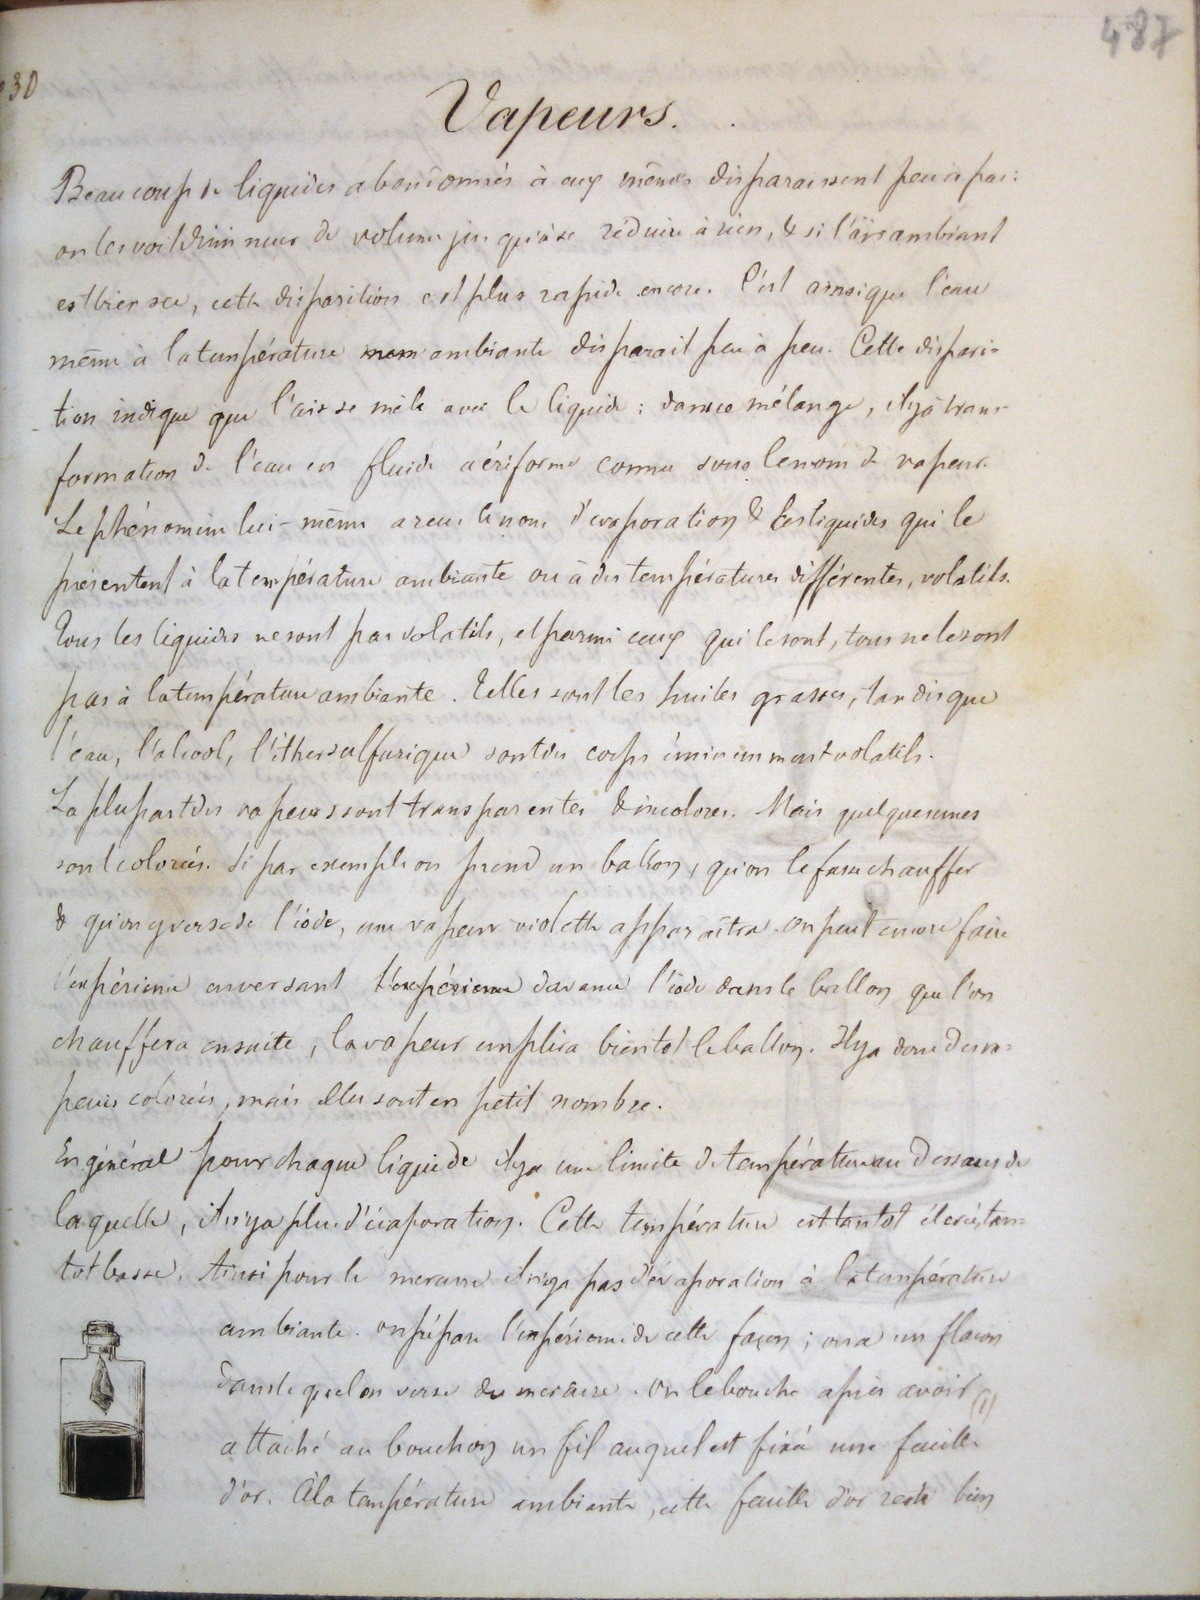 487
30
Vapeurs.
Beaucoup de liquides abandonnés à eux mêmes disparaissent peu à peu:
on les voit diminuer de volume jusqu'à se réduire à rien, & si l'air ambiant
est bien sec, cette disparition est plus rapide encore. C'est ainsi que l'eau
même à la température ambiante disparait peu à peu. Cette dispari=
tion indique que l'air se mêle avec le liquide; dans ce mélange, il y a trans-
formation de l'eau en fluide aériforme connu sous le nom de vapeur.
Le phénomène lui-même a reçu le nom d'evaporation & les liquides qui le
présentent à la température ambiante ou à des températures différentes, volatils.
Tous les liquides ne sont pas volatils, et parmi ceux qui le sont, tous ne le sont
pas à la température ambiante. Telles sont les huiles grasses, tandis que
l'eau, l'alcool, l'éther sulfurique sont des corps éminemment volatils.
La plupart des vapeurs sont transparentes & incolores. Mais quelques unes
sont colorées. Si par exemple on prend un ballon, qu'on le fasse chauffer
& qu'on y verse de l'iode, une vapeur violette apparaîtra. On peut encore faire
l'expérience en versant l'expérience d'avance l'iode dans le ballon que l'on
chauffera ensuite, la vapeur emplira bientot le ballon. Il y a donc des va=
peurs colorées, mais elles sont en petit nombre.
En général pour chaque liquide il y a une limite de température au dessous de
laquelle, il n'y a plus d'évaporation. Cette température est tantot élevée, tan=
tot basse. Ainsi pour le mercure il n'y a pas d'évaporation à la température
ambiante. On prépare l'expérience de cette façon; on a un flacon
dans lequel on verse du mercure. On le bouche après avoir (1)
attaché au bouchon un fil auquel est fixé une feuille
d'or. À la température ambiante, cette feuille d'or reste bien